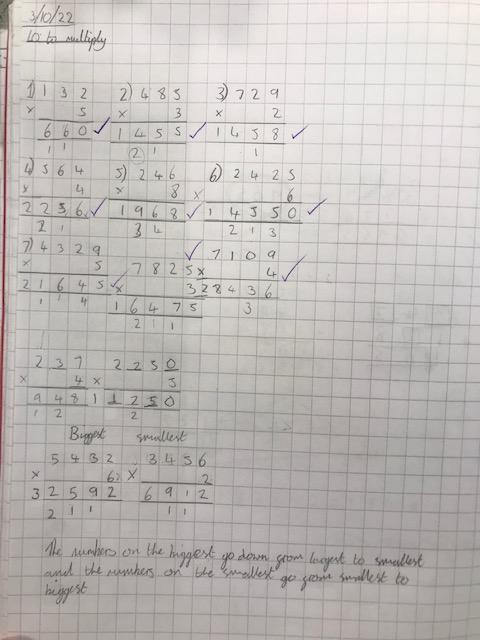 3/10/22
LO to multiply
1) 1 3 2 2) 4 8 5 3) 7 2 9
x 5 x 3 x 2
6 6 0 ✓ 1 4 5 5 ✓ 1 4 5 8 ✓
1 1 2 1 1
4) 5 6 4 5) 2 4 6 6) 2 4 2 5
x 4 x 8 x 6
2 2 5 6 ✓ 1 9 6 8 ✓ 1 4 5 5 0 ✓
2 1 3 4 2 1 3
7) 4 3 2 9 7 8 2 5 ✓ 7 1 0 9
x 5 x 3 x 4 ✓
2 1 6 4 5 ✓ 1 6 4 7 5 2 8 4 3 6
1 1 4 2 1 1 3
2 3 7 2 2 5 0
x 4 x 5
9 4 8 1 1 2 5 0
1 2 2
Biggest smallest
5 4 3 2 3 4 5 6
x 6 x 2
3 2 5 9 2 6 9 1 2
2 1 1 1 1
The numbers on the biggest go down from largest to smallest
and the numbers on the smallest go from smallest to
biggest